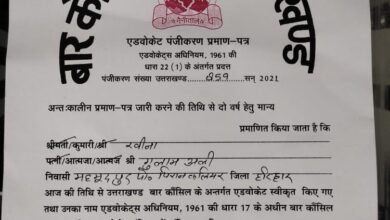 बार कौ
खण्ड
नैनीताल
एडवोकेट पंजीकरण प्रमाण–पत्र
एडवोकेट्स अधिनियम, 1961 की
धारा 22 (1) के अंतर्गत प्रदत्त
पंजीकरण संख्या उत्तराखण्ड 659 सन् 2021
अन्तःकालीन प्रमाण–पत्र जारी करने की तिथि से दो वर्ष हेतु मान्य
प्रमाणित किया जाता है कि
श्रीमती/कुमारी/श्री रवीना
पत्नी/आत्मजा/आत्मज श्री गुलाम अली
निवासी पो० जिला हरिद्वार
आज की तिथि से उत्तराखण्ड बार कौंसिल के अन्तर्गत एडवोकेट स्वीकृत किए गए
तथा उनका नाम एडवोकेट्स अधिनियम, 1961 की धारा 17 के अधीन बार कौंसिल